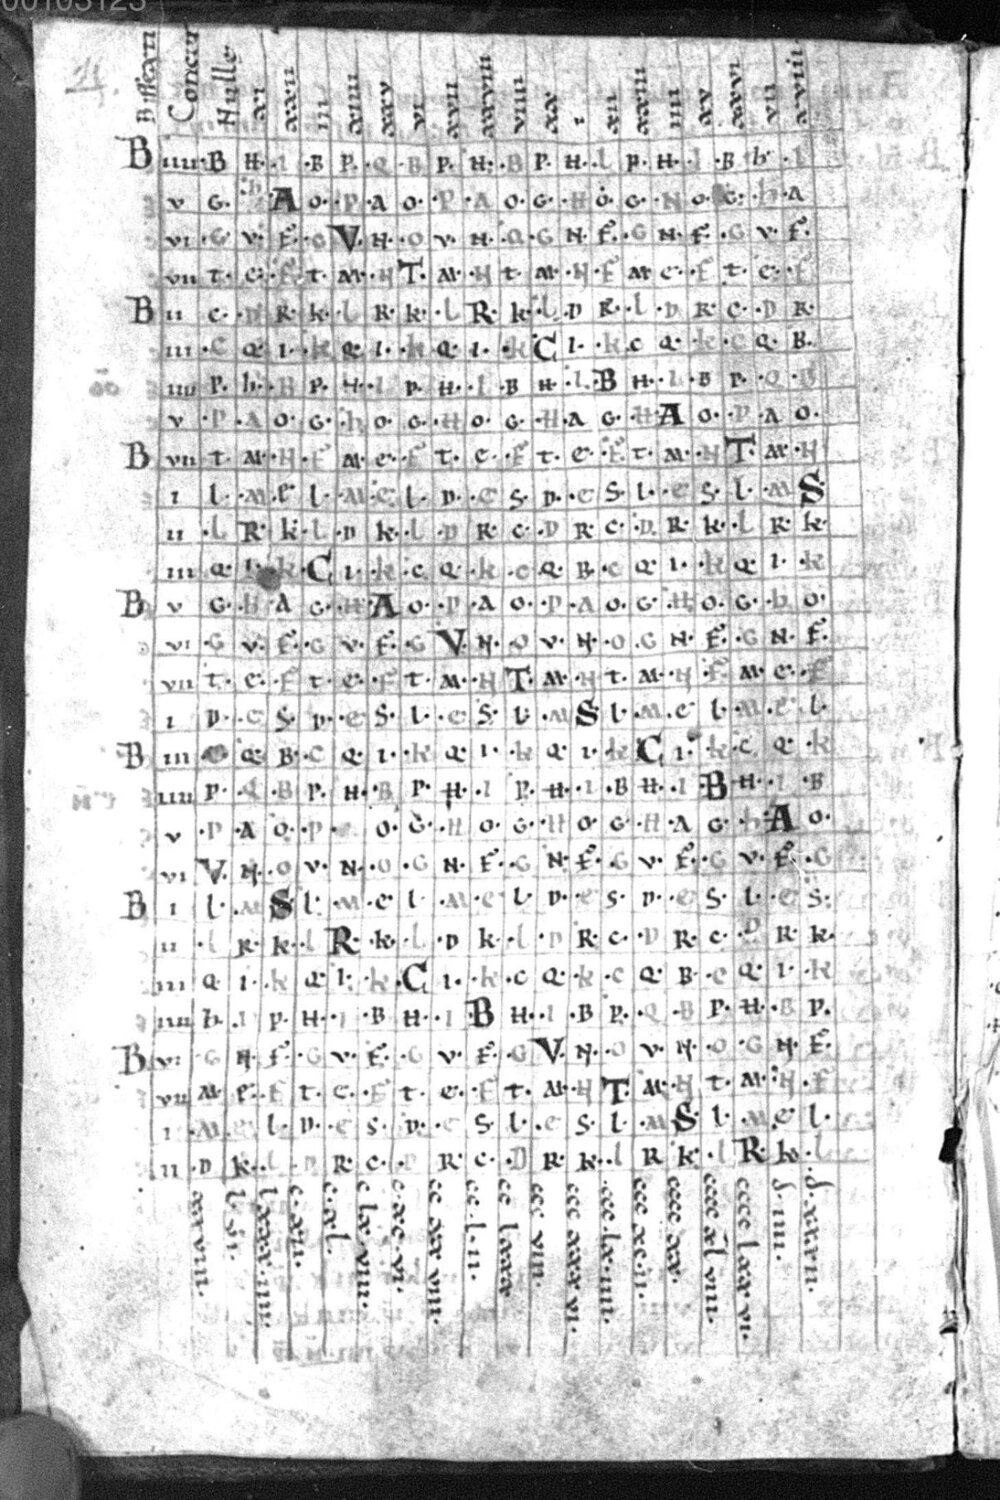 00103123
Concur Nulle xi xxii iii xiiii xxv vi xvii xxviii viiii xx i xii xxiii iiii xv xxvi vii xviii
B iiii B H I B P Q B P H B P H I P H I B h I
v G A O P A O P A O G H O G N O G h A
vi G V F G V N O V N O G N F G N F G V F
vii T E F T M H T M H T M H F M E F T E F
B ii C D R K L R K L R K L D R L D R C D R
iii C Q I K Q I K Q I K C I K C Q K C Q B
iiii P h B P H I P H I B H I B H I B P Q B
v P A O G h O G H O G H A G H A O P A O
B vii T M H F M E F T E F T E F T M H T M H
i L M E L M E L D E S D E S L E S L M S
ii L R K L D K L D R C D R C D R K L R K
iii Q I K C I K C Q K C Q B C Q I K Q I K
B v G H A G H A O P A O P A O G H O G h O
vi G V F G V F G V N O V N O G N F G N F
vii T E F T E F T M H T M H T M H F M E F
i D E S D E S L E S L M S L M E L M E L
B iii Q B C Q I K Q I K Q I K C I K C Q K
iiii P Q B P H B P H I P H I B H I B H I B
v P A O P O G H O G H O G H A G h A O
vi V N O V N O G N F G N F G V F G V F G
B i L M S L M E L M E L D E S D E S L E S
ii L R K L R K L D K L D R C D R C D R K
iii Q I K Q I K C I K C Q K C Q B C Q I K
iiii h I P H I B H I B H I B P Q B P H B P
B vi G N F G V F G V F G V N O V N O G N F
vii M E F T E F T E F T M H T M H T M H F
i M E L D E S D E S L E S L M S L M E L
ii D K L D R C D R C D R K L R K L R K L
xxviii lvi lxxxiiii cxii cxl clxviii cxcvi ccxxviii cclii cclxxx cccviii cccxxxvi ccclxiiii cccxcii ccccxx ccccxlviii cccclxxvi diiii dxxxii